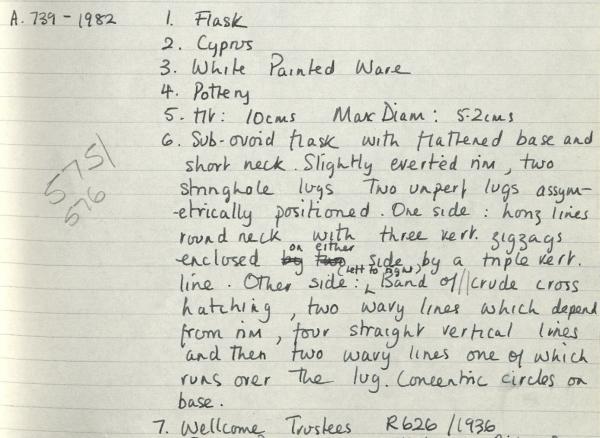 A. 739-1982 1. Flask
2. Cyprus
3. White Painted Ware
4. Pottery
5. Ht: 10cms Max Diam: 5.2cms
6. Sub-ovoid flask with flattened base and
short neck. Slightly everted rim, two
stringhole lugs Two unperf lugs assym-
-etrically positioned. One side: horiz lines
round neck with three vert. zigzags
enclosed by two on either side by a triple vert.
line. Other side: (left to right) Band of || crude cross
hatching, two wavy lines which depend
from rim, four straight vertical lines
and then two wavy lines one of which
runs over the lug. Concentric circles on
base.
7. Wellcome Trustees R626/1936
575/
576